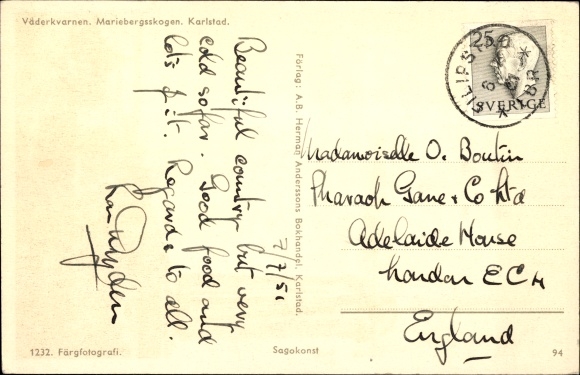 Väderkvarnen. Mariebergsskogen. Karlstad.
7/7/51
Beautiful country but very
cold so far. Good food and
lots of it. Regards to all.
Förlag: A.B. Herman Anderssons Bokhandel, Karlstad.
25
SVERIGE
Madamoiselle O. Boutin
Pharaoh Gane & Co Ltd
Adelaide House
London EC4
England
1232. Färgfotografi.
Sagokonst
94